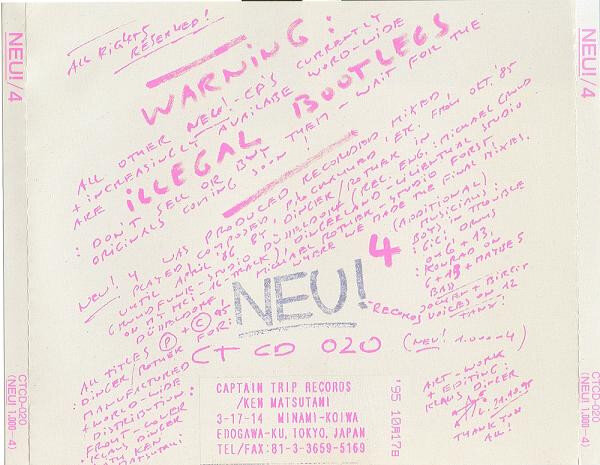 NEU!/4
CTCD-020
(NEU! 1.000-4)
ALL RIGHTS
RESERVED!
WARNING:
ALL OTHER NEU!-CD'S CURRENTLY
+ INCREASINGLY AVAILABLE WORD-WIDE
ARE ILLEGAL BOOTLEGS
: DON'T SELL OR BUY THEM - WAIT FOR THE
ORIGINALS COMING SOON!
NEU! 4 WAS PRODUCED, RECORDED, MIXED,
PLAYED, COMPOSED, P/C COLOURED, ETC. FROM OKT. '85
UNTIL APRIL '86 BY DINGER/ROTHER IN
GRUNDFUNK-STUDIO DÜSSELDORF (REC. ENG.: MICHAEL GRUND
ON MY MCI-16-TRACK), DINGERLAND-LILIENTHAL STUDIO
DÜSSELDORF + MICHAEL ROTHER STUDIO FORST,
WHERE WE MADE THE FINAL MIXES.
(ADDITIONAL)
MUSICIANS:
BOYS IN TROUBLE
: G.G. DRUMS
ON 6 + 13,
: KONRAD ON
6 + 13 + MATHES
BASS
JOCHEN + BIRGIT
VOICES ON 12
TANZ!
4
NEU!
-RECORDS
ALL TITLES P + C '95
: DINGER/ROTHER
MANUFACTURED
+ WORLD-WIDE
DISTRIBUTION
FOR:
FRONT-COVER
: KLAUS DINGER
WITH KEN
MATSUTANI
CT CD 020
(NEU! 1.000-4)
CAPTAIN TRIP RECORDS
/KEN MATSUTANI
3-17-14 MINAMI-KOIWA
EDOGAWA-KU, TOKYO, JAPAN
TEL/FAX:81-3-3659-5169
'95 10月17日
ART-WORK
+ EDITING:
KLAUS DINGER
THANK YOU
ALL!
NEU!/4
CTCD-020
(NEU! 1.000-4)